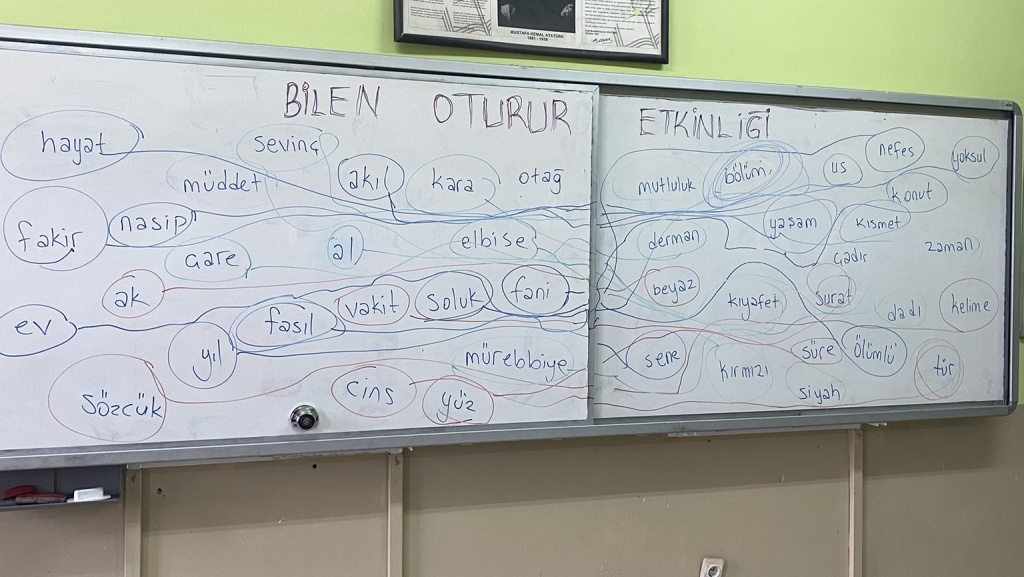 MUSTAFA KEMAL ATATÜRK
1881 - 1938
BİLEN OTURUR ETKİNLİĞİ
hayat
sevinç
müddet
akıl
kara
otağ
fakir
nasip
çare
al
elbise
ak
ev
fasıl
vakit
soluk
fani
yıl
mürebbiye
sözcük
cins
yüz
mutluluk
bölüm
us
nefes
yoksul
konut
derman
yaşam
kısmet
çadır
zaman
beyaz
kıyafet
surat
dadı
kelime
sene
kırmızı
süre
ölümlü
tür
siyah